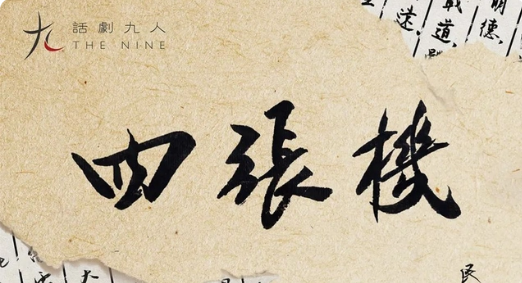 話劇九人
THE NINE
四張機
明德
戰道
遠
民